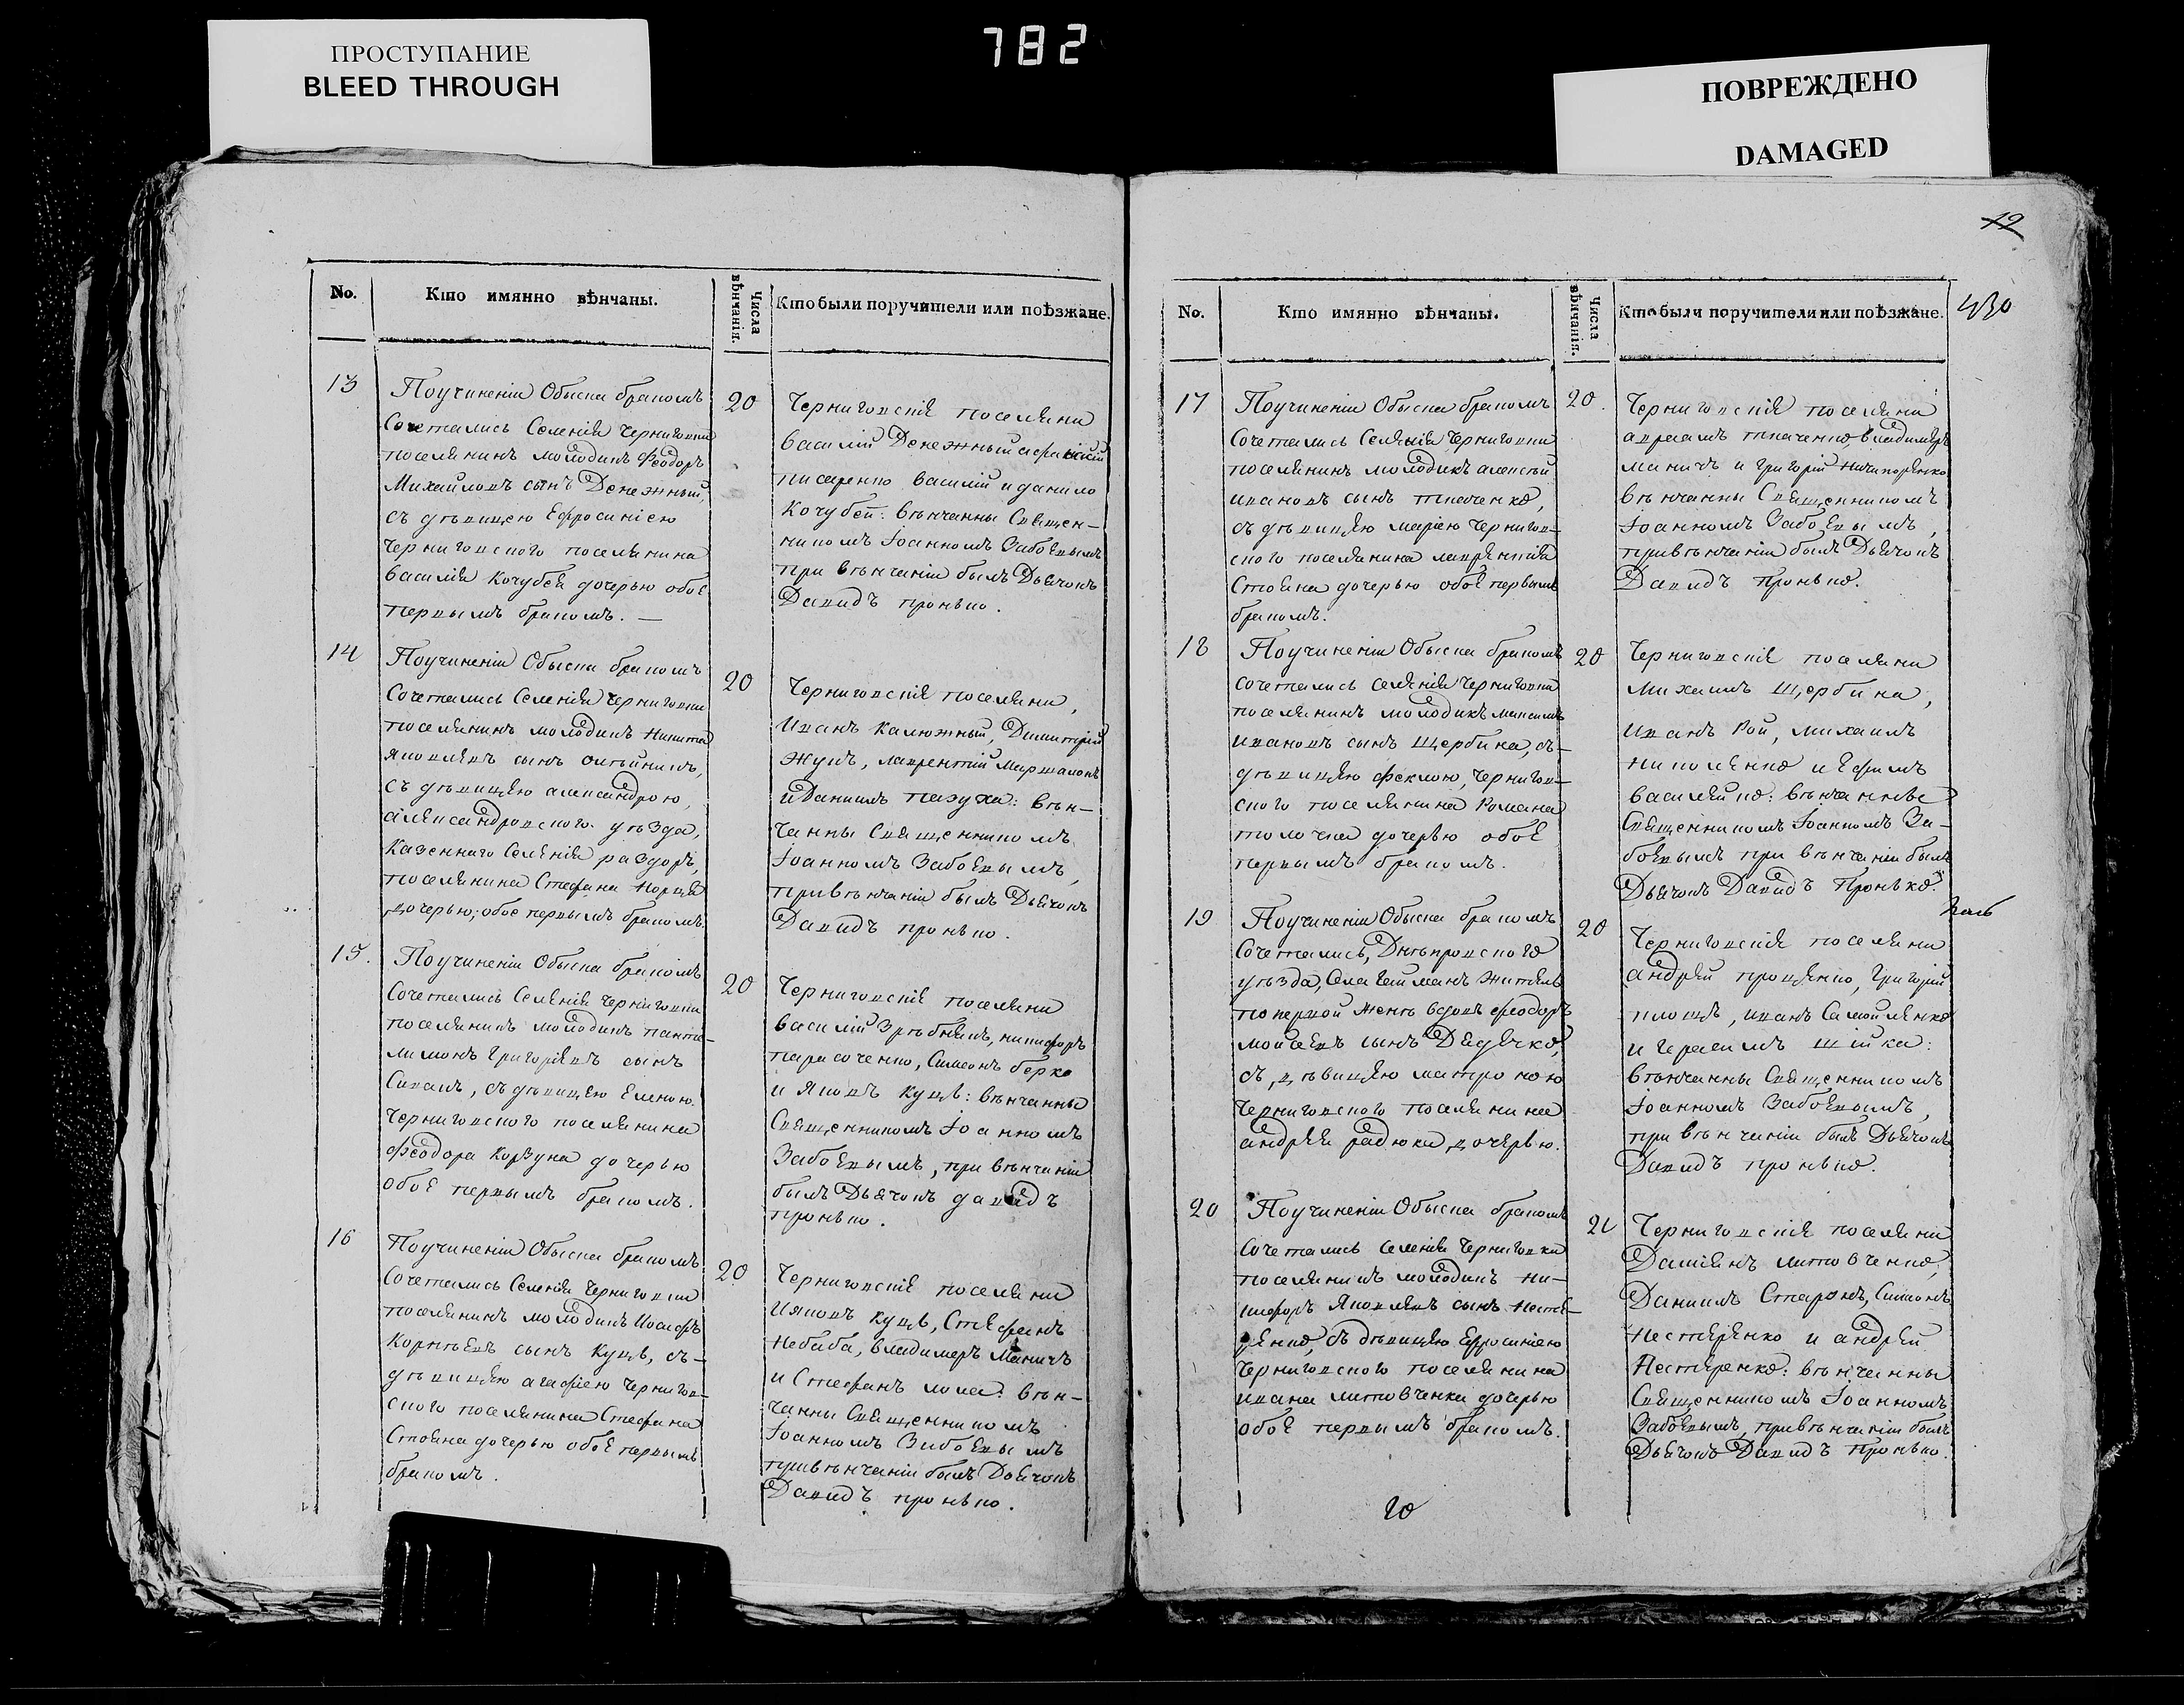 ПРОСТУПАНИЕ
BLEED THROUGH
782
ПОВРЕЖДЕНО
DAMAGED
12
No.
Кто имянно вѣнчаны.
Числа вѣнчанія.
Кто были поручители или поѣзжане.
13
Поучиненіи Обыска бракомъ
Сочетались Селенія Черниговки
поселянинъ молодикъ Феодоръ
Михайловъ сынъ Денежный,
съ дѣвицею Ефросиніею
Черниговского поселянина
Василія Кочубея дочерью обое
первымъ бракомъ. —
20
Черниговскіе поселяни
Василій Денежный
писаренко Василій и данило
Кочубей: вѣнчанны Священ-
никомъ Іоанномъ Забоевымъ
при вѣнчаніи былъ Дьячокъ
Давидъ пронько.
14
Поучиненіи Обыска бракомъ
Сочетались Селенія Черниговки
поселянинъ молодикъ Никита
Яковлевъ сынъ олѣйникъ,
съ дѣвицею александрою,
александровского уѣзда,
Казенного Селенія раздоръ,
поселянина Стефана Коржа
дочерью; обое первымъ бракомъ.
20
Черниговскіе поселяни,
Иванъ Калюжный, Димитрій
Жукъ, лаврентій Маршалокъ
и Даниилъ пазуха: вѣн-
чанны Священникомъ
Іоанномъ Забоевымъ,
привѣнчаніи былъ Дьячокъ
Давидъ пронько.
15.
Поучиненіи Обыска бракомъ
Сочетались Селенія Черниговки
поселянинъ молодикъ панте-
лимонъ Григоріевъ сынъ
Сипакъ, съ дѣвицею Еленою.
Черниговского поселянина
Феодора Корзуна дочерью
обое первымъ бракомъ.
20
Черниговскіе поселяни
василій Зрѣбнякъ, никифоръ
парасоченко, Симеонъ берко
и Яковъ Куцъ: вѣнчанны
Священникомъ Іоанномъ
Забоевымъ, при вѣнчаніи
былъ Дьячокъ давидъ
пронько.
16
Поучиненіи Обыска бракомъ
Сочетались Селенія Черниговки
поселянинъ молодикъ Иосифъ
Корнѣевъ сынъ Куцъ, съ-
дѣвицею агафіею Чернигов-
ского поселянина Стефана
Стояна дочерью обое первымъ
бракомъ.
20
Черниговскіе поселяни
Ияковъ Куцъ, Стефанъ
Небаба, владимеръ Маничъ
и Стефанъ лола: вѣн-
чанны Священникомъ
Іоанномъ Забоевымъ
привѣнчаніи былъ Дьячокъ
Давидъ пронько.
No.
Кто имянно вѣнчаны.
Числа вѣнчанія.
Кто были поручители или поѣзжане.
430
17
Поучиненіи Обыска бракомъ
Сочетались Селенія Черниговки
поселянинъ молодикъ алексѣй
ивановъ сынъ ткаченко,
съ дѣвицею маріею Чернигов-
ского поселянина лаврентія
Стояна дочерью обое первымъ
бракомъ.
20.
Черниговскіе поселяни
авраамъ ткаченко, владимеръ
маничъ и григорій ничипоренко
вѣнчанны Священникомъ
Іоанномъ Забоевымъ,
привѣнчаніи былъ Дьячокъ
Давидъ Пронько.
18
Поучиненіи Обыска бракомъ
сочетались селенія Черниговки
поселянинъ молодикъ максимъ
ивановъ сынъ Щербина, съ-
дѣвицею феклою, Чернигов-
ского поселянина Романа
толочка дочерью обое
первымъ бракомъ.
20
Черниговскіе поселяни
Михаилъ Щербина,
Иванъ Рой, михаилъ
николенко и Ефимъ
василейко: вѣнчанные
Священникомъ Іоанномъ За-
боевымъ при вѣнчаніи былъ
Дьячокъ Давидъ Пронько.
19
Поучиненіи Обыска бракомъ
Сочетались, Днѣпровского
уѣзда, Села Гайманъ житель
по первой женѣ вдовъ феодоръ
мойсеевъ сынъ Дядечко,
съ, дѣвицею матроною
Черниговского поселянина
андрея радюка, дочерью.
20
Черниговскіе поселяни
андрей проценко, Григорій
плющъ, иванъ Самойленко
и Герасимъ шійка:
вѣнчанны Священникомъ
Іоанномъ Забоевымъ,
при вѣнчаніи былъ Дьячокъ
Давидъ пронько.
20
Поучиненіи Обыска бракомъ
Сочетались селенія Черниговки
поселянинъ молодикъ ни-
кифоръ Яковлевъ сынъ Несте-
ренко, съ дѣвицею Ефросиніею
Черниговского поселянина
ивана литовченка дочерью
обое первымъ бракомъ.
Черниговскіе поселяни
Даміанъ литовченко,
Даниилъ Старокъ, Симонъ
Нестеренко и андрей
Нестеренко: вѣнчанны
Священникомъ Іоанномъ
Забоевымъ, привѣнчаніи былъ
Дьячокъ Давидъ Пронько.
20